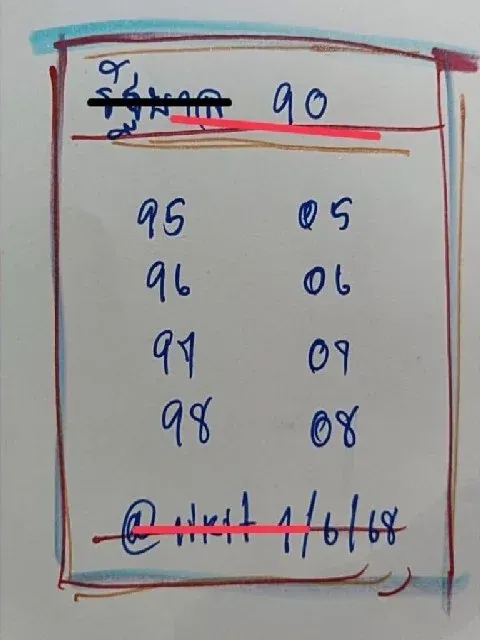 90
95 05
96 06
97 07
98 08
@ 1/6/68